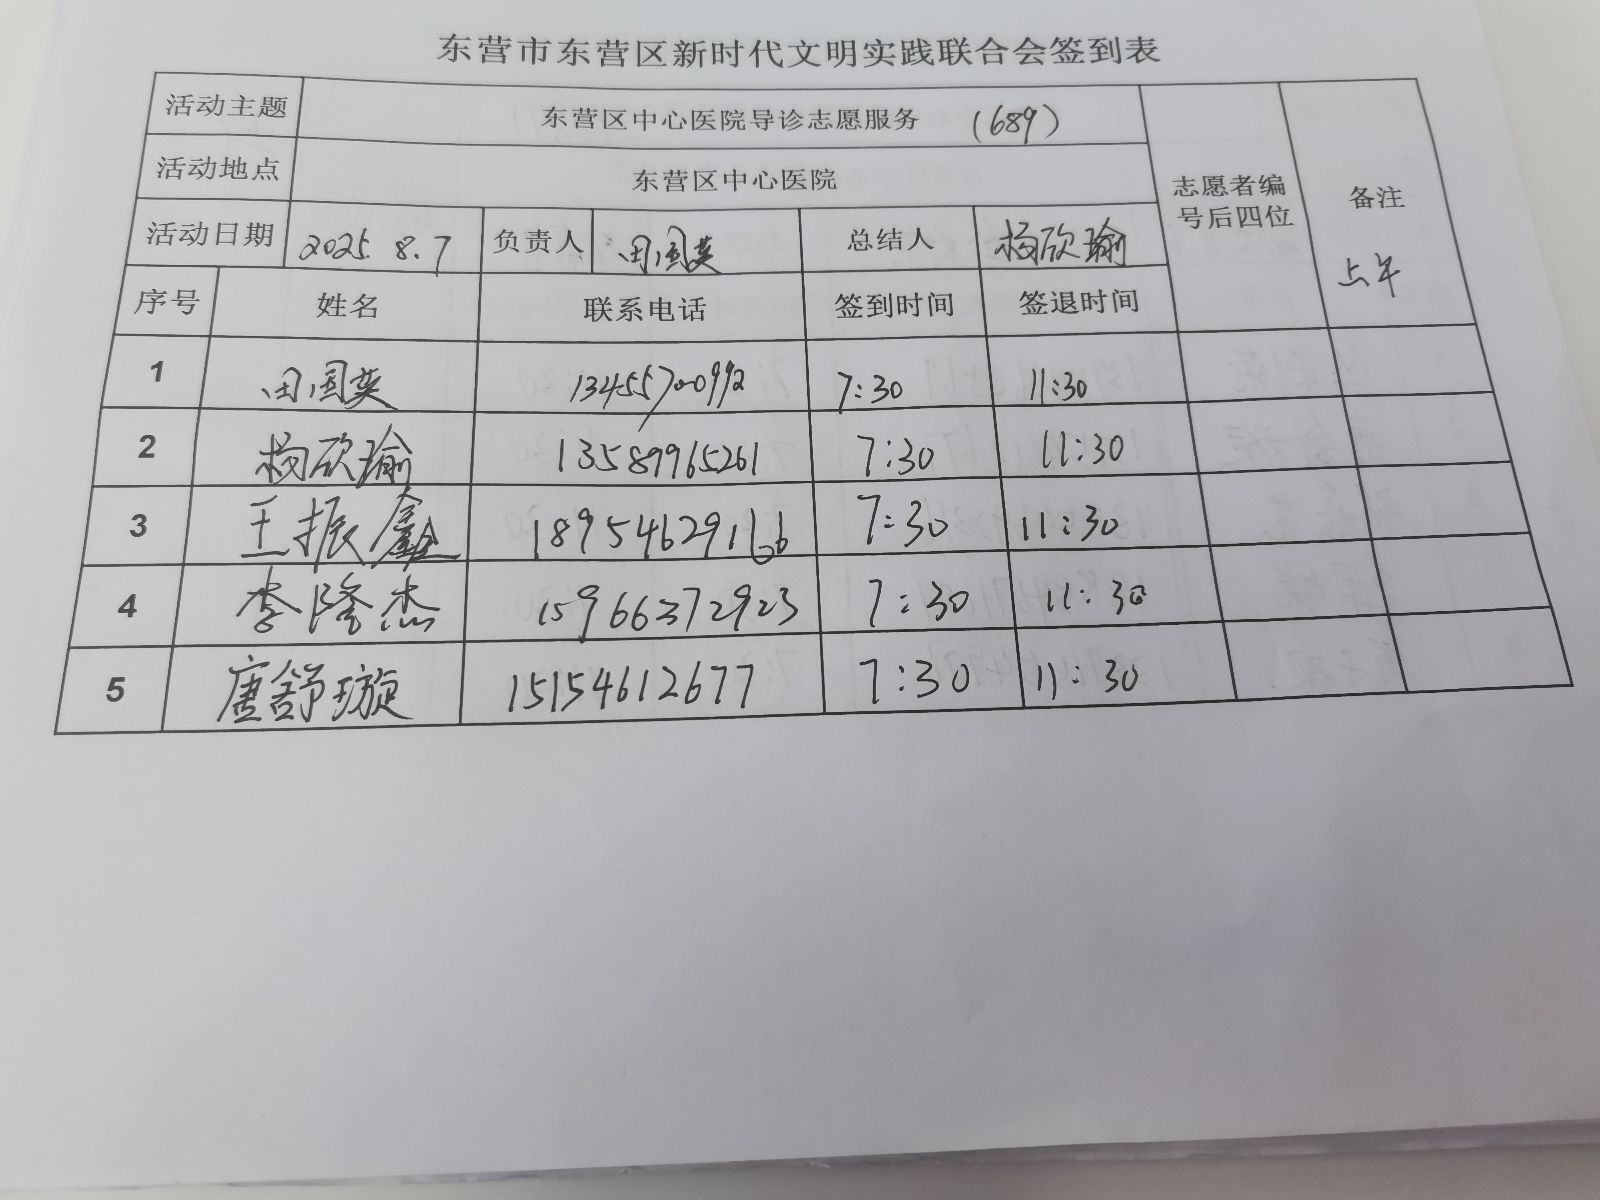 东营市东营区新时代文明实践联合会签到表
活动主题 东营区中心医院导诊志愿服务 (689) 志愿者编号后四位 备注
活动地点 东营区中心医院
活动日期 2025.8.7 负责人 田国英 总结人 杨欣瑜 上午
序号 姓名 联系电话 签到时间 签退时间
1 田国英 13455700992 7:30 11:30
2 杨欣瑜 13589965261 7:30 11:30
3 王振鑫 7:30 11:30
4 李隆杰 15966372923 7:30 11:30
5 唐舒璇 15154612677 7:30 11:30